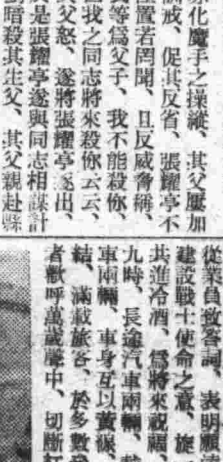 赤化魔手之操縱、其父屢加
誡戒、促其反省、張耀亭不
置若罔聞、且反威脅稱、
等爲父子、我不能殺你、
我之同志將來殺你云云、
父怒、遂將張耀亭逐出、
於是張耀亭遂與同志相謀計
暗殺其生父、其父親赴縣
從業員致答詞、表明
建設戰士使命之意、旋
共進冷酒、爲將來祝福、
九時、長途汽車兩輛、
車兩輛、車身互以黃綵
結、滿載旅客、於多數
者歡呼萬歲聲中、切斷